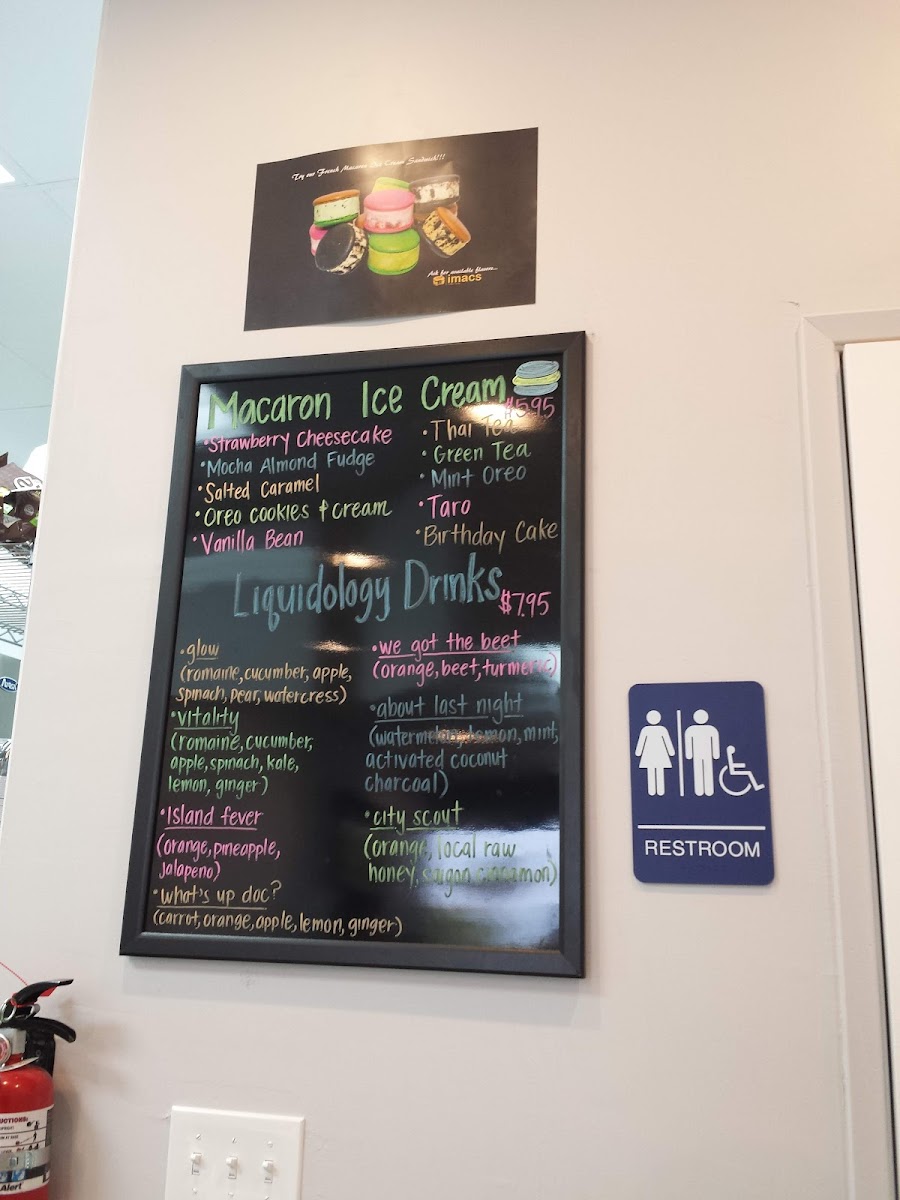 Try our French Macaron Ice Cream Sandwich!!!
Ask for available flavors...
imacs
Macaron Ice Cream
$5.95
• Strawberry Cheesecake
• Mocha Almond Fudge
• Salted Caramel
• Oreo cookies & cream
• Vanilla Bean
• Thai Tea
• Green Tea
• Mint Oreo
• Taro
• Birthday Cake
Liquidology Drinks
$7.95
• glow
(romaine, cucumber, apple,
spinach, pear, watercress)
• vitality
(romaine, cucumber,
apple, spinach, kale,
lemon, ginger)
• Island fever
(orange, pineapple,
jalapeno)
• what's up doc?
(carrot, orange, apple, lemon, ginger)
• we got the beet
(orange, beet, turmeric)
• about last night
(watermelon, lemon, mint,
activated coconut
charcoal)
• city scout
(orange, local raw
honey, saigon cinnamon)
RESTROOM